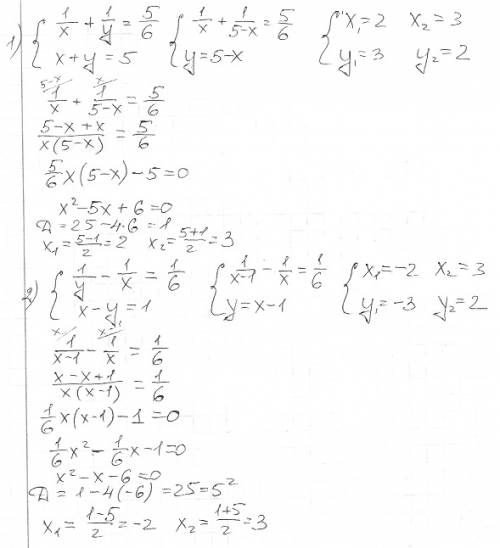 1) { 1/x + 1/y = 5/6   { 1/x + 1/(5-x) = 5/6   { x₁=2   x₂=3
x+y=5   y=5-x   y₁=3   y₂=2
5-x/ 1/x + x/ 1/(5-x) = 5/6
(5-x+x)/(x(5-x)) = 5/6
5/6 x(5-x)-5=0
x²-5x+6=0
D=25-4·6=1
x₁=(5-1)/2=2   x₂=(5+1)/2=3
2) { 1/y - 1/x = 1/6   { 1/(x-1) - 1/x = 1/6   { x₁=-2   x₂=3
x-y=1   y=x-1   y₁=-3   y₂=2
x/ 1/(x-1) - x-1/ 1/x = 1/6
(x-x+1)/(x(x-1)) = 1/6
1/6 x(x-1)-1=0
1/6 x² - 1/6 x-1=0
x²-x-6=0
D=1-4(-6)=25=5²
x₁=(1-5)/2=-2   x₂=(1+5)/2=3